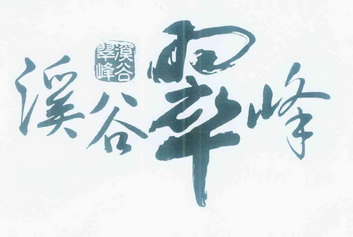 溪谷翠峰
溪谷
翠峰